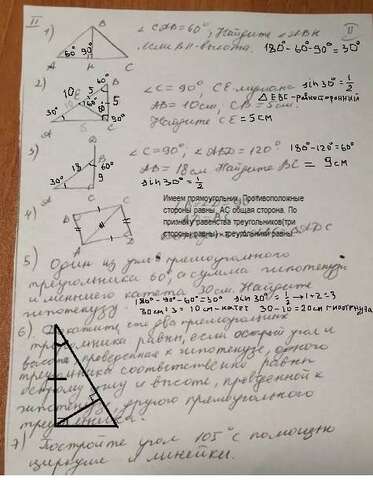 II
II
1)
B
60° 90°
A H C
∠CAB=60°, Найдите ∠ABH
если BH-высота. 180°-60°-90°=30°
2)
B
10 5 60°
E
60° 5
30°
A C 90°
∠C=90°, CE медиана sin30°=1/2
AB=10см, CB=5см. △EBC-равносторонний
Найдите CE=5см
3)
B
60°
18
9
30°
A C
∠C=90°; ∠ABD=120° 180°-120°=60°
AB=18см Найдите BC = 9см
sin30°=1/2
4)
B C
A D
Имеем прямоугольник. Противоположные
стороны равны. AC общая сторона. По
признаку равенства треугольников(три
стороны равны) - треугольники равны
5) Один из углов прямоугольного
треугольника 60°, а сумма гипотенузы
и меньшего катета 30см. Найдите
гипотенузу 180°-90°-60°=30° sin30°=1/2→1+2=3
30см:3=10см-катет 30-10=20см гипотенуза
6) Докажите, что два прямоугольных
треугольника равны, если острый угол и
высота, проведенная к гипотенузе, одного
треугольника соответственно равны
острому углу и высоте, проведенной к
гипотенузе, другого прямоугольного
треугольника.
7) Постройте угол 105° с помощью
циркуля и линейки.